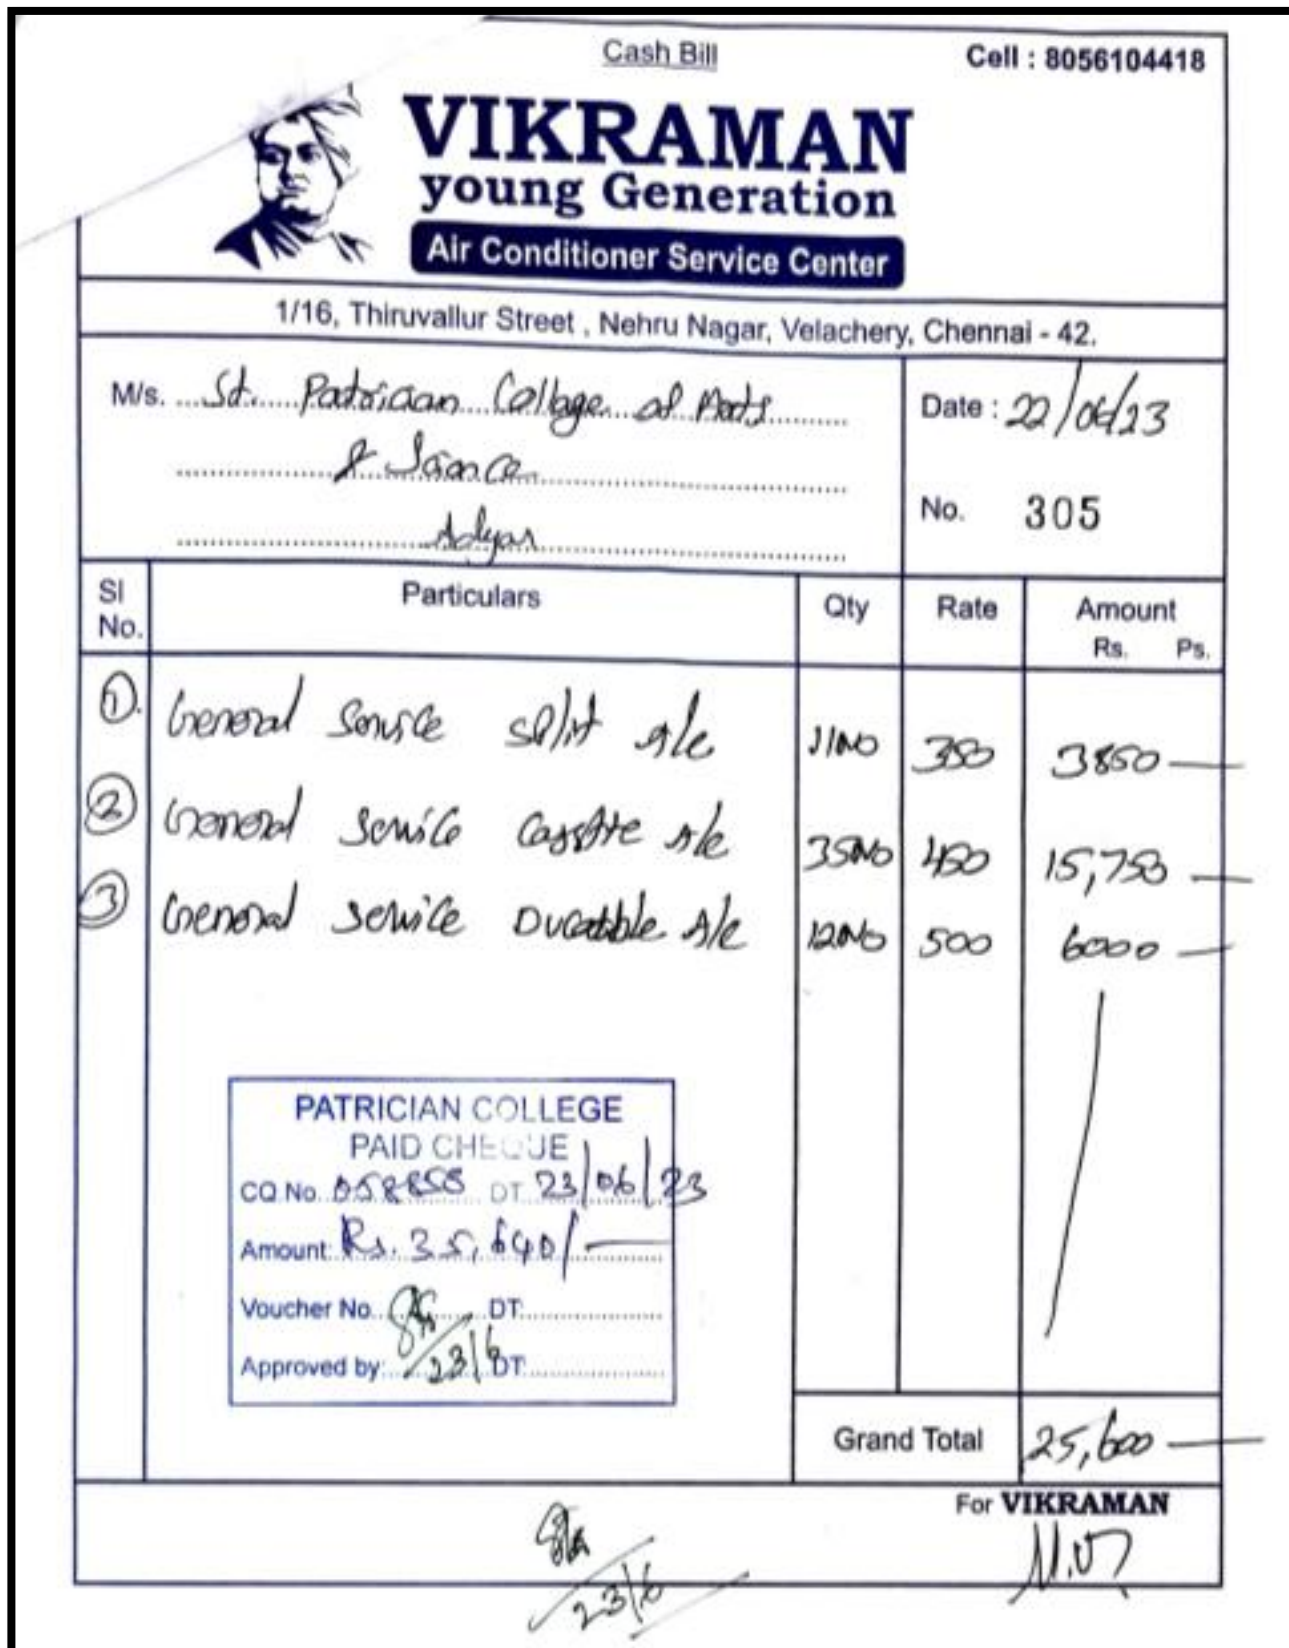 Cash Bill
Cell : 8056104418
VIKRAMAN
young Generation
Air Conditioner Service Center
1/16, Thiruvallur Street , Nehru Nagar, Velachery, Chennai - 42.
M/s. St. Patrician College of Arts
& Science
Adyar
Date : 22/06/23
No. 305
Sl No. Particulars Qty Rate Amount
Rs. Ps.
1. General Service split A/c 11No 350 3850 —
2 General Service Cassitte A/c 35No 450 15,750 —
3 General Service Ducatble A/c 12No 500 6000 —
PATRICIAN COLLEGE
PAID CHEQUE
CQ No. 058858 DT 23/06/23
Amount: Rs. 35,640/—
Voucher No. DT:
Approved by: 23/6 DT
Grand Total 25,600 —
For VIKRAMAN
23/6